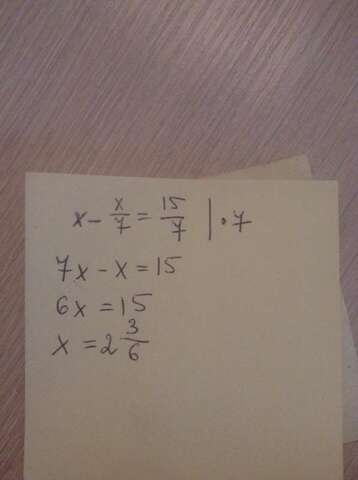 x - x/7 = 15/7 | · 7
7x - x = 15
6x = 15
x = 2 3/6